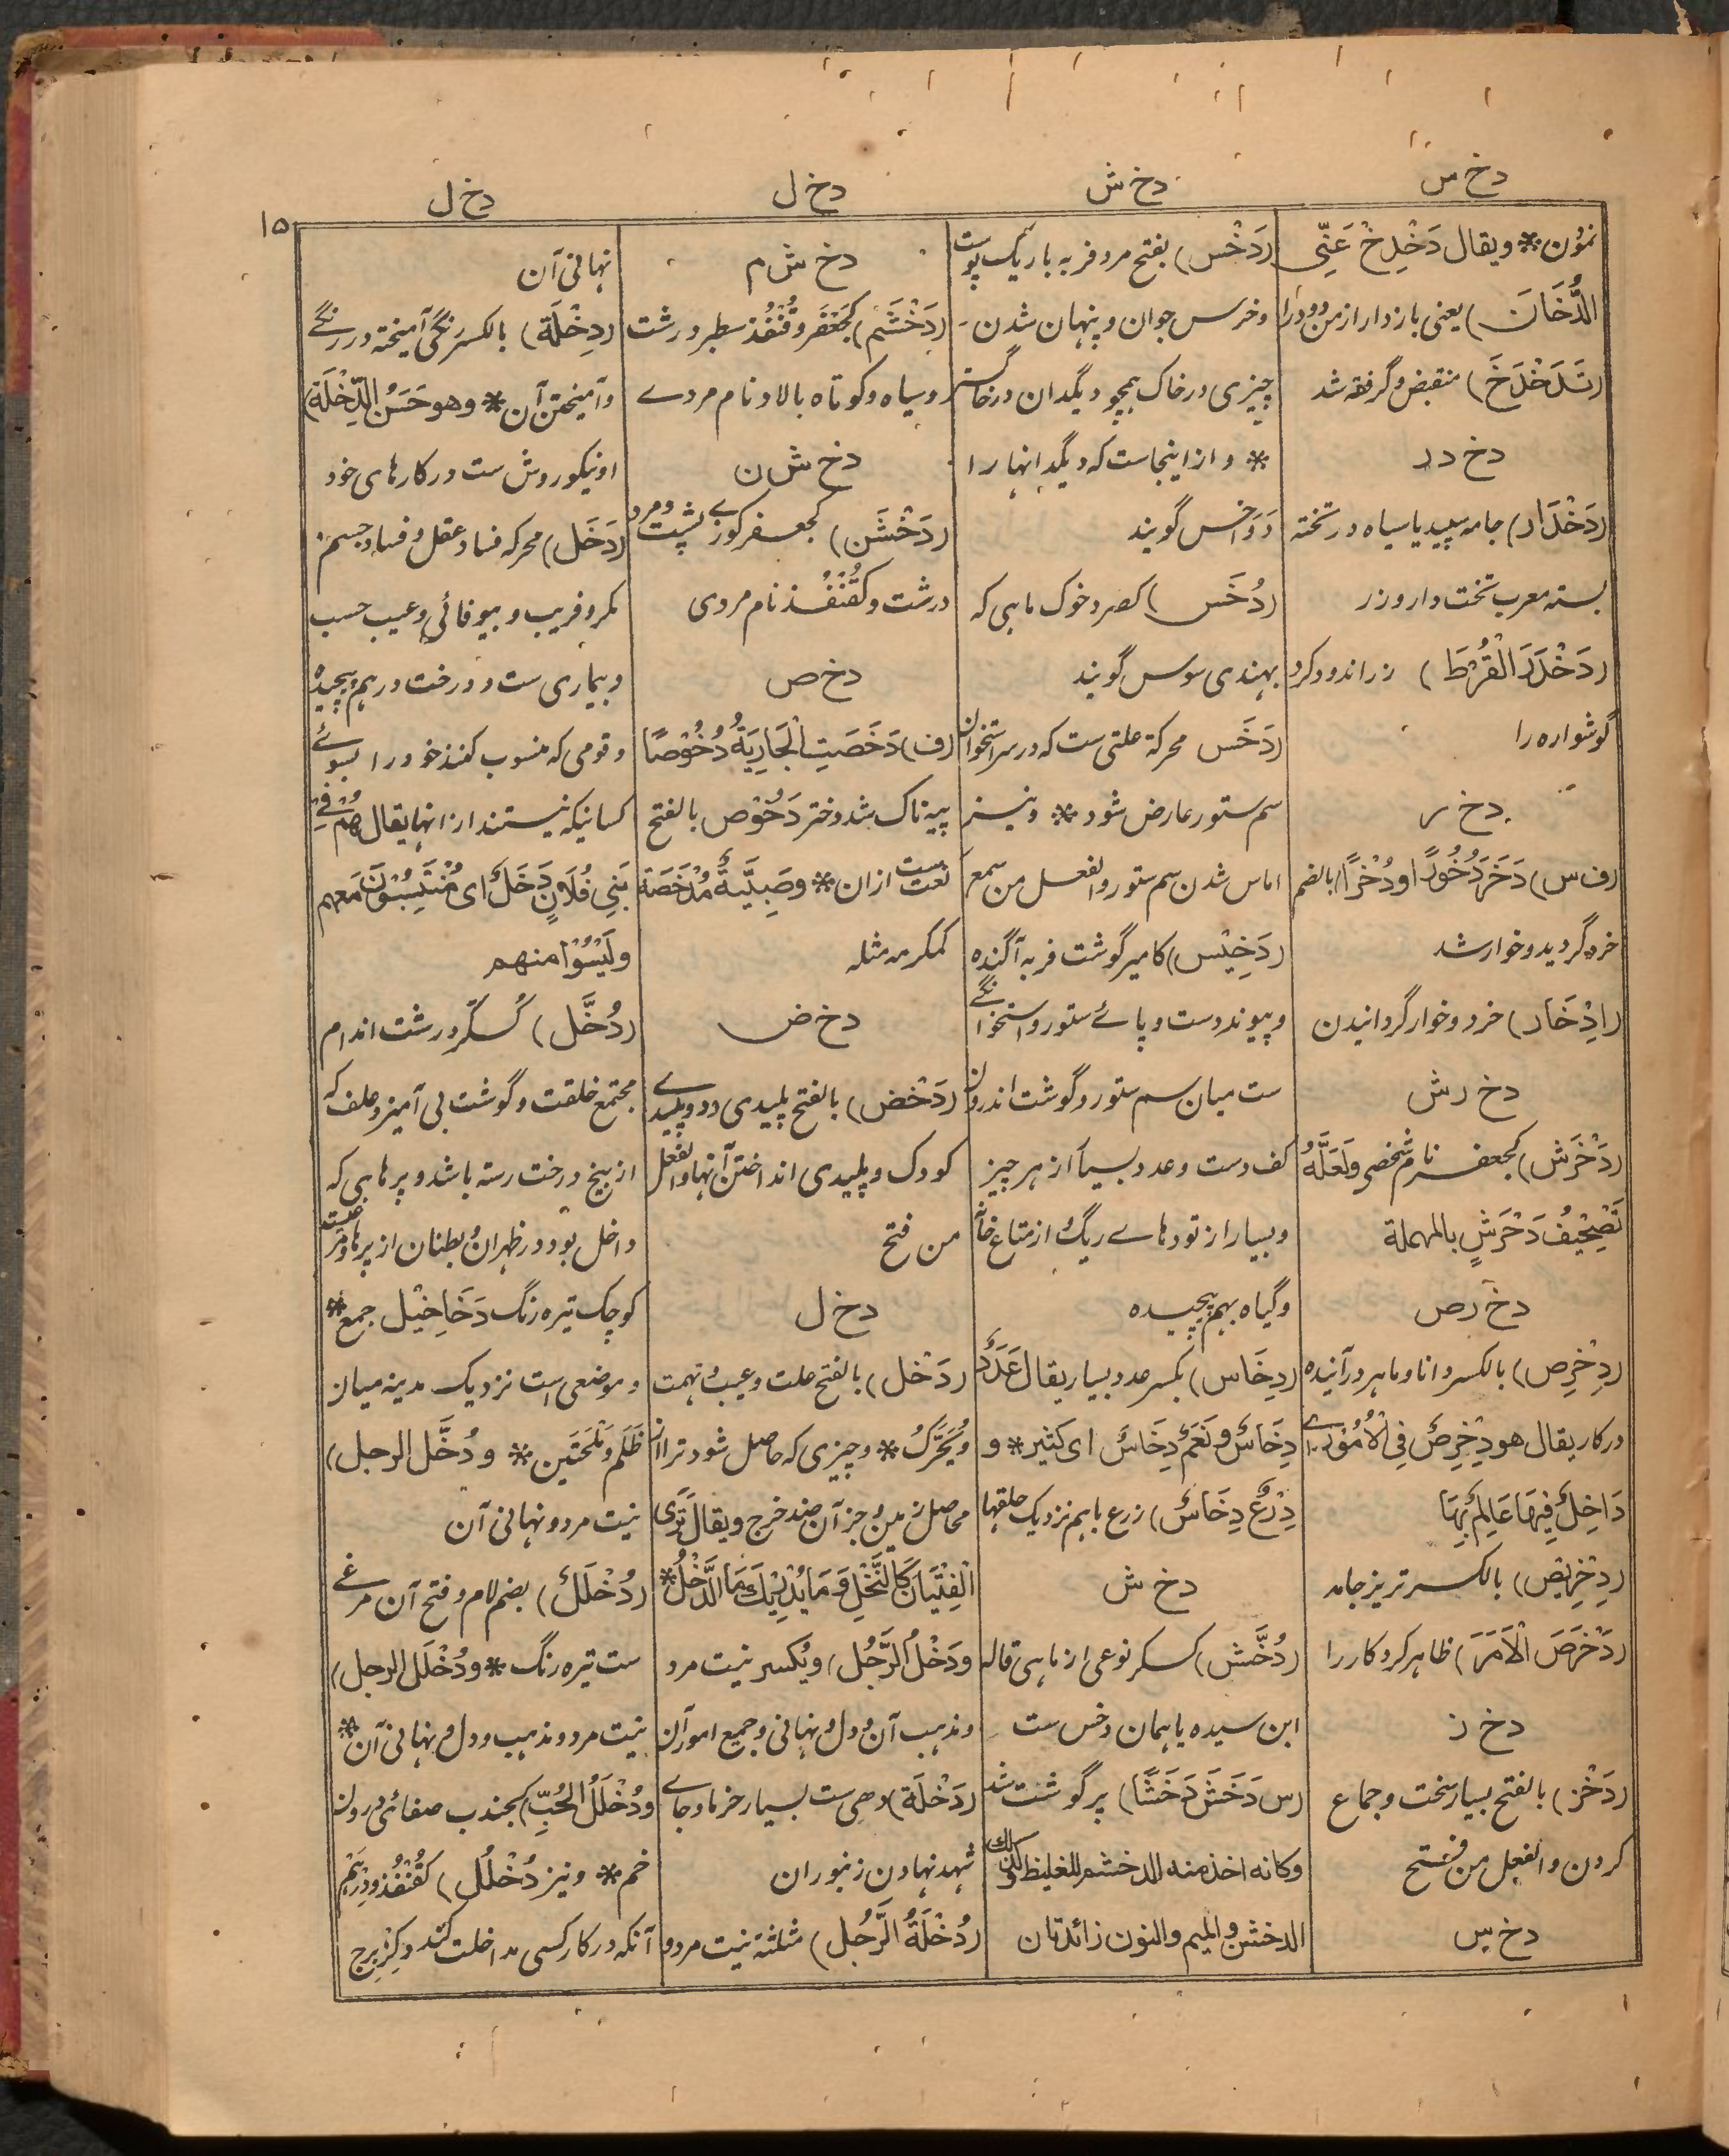 دخ س
دخ ش
دخ ل
دخ ل
۱۵
نمؤن * ويقال دَخْلِخْ عَنِّى
الدُّخَانَ) يعنى باز دار از من دود را
(تَدَخْدَخَ) منقبض وگرفته شد
دخ د ر
(دَخْدَار) جامه سپيد يا سياه در تخته
بسته معرب تخت دار وزر
(دَخْدَرَ الْقُرْطَ) زراندود کرد
گوشواره را
دخ ر
(ف س) دَخَرَ دُخُوْرًا ودُخْرًا) بالضم
خرد گرديد وخوار شد
(اِدْخَار) خرد وخوار گردانيدن
دخ ر ش
(دَخْرَش) کجعفر نام شخصى ولَعَلَّهُ
تَصْحِيْفُ دَحْرَشٍ بالمهملة
دخ ر ص
(دِخْرِص) بالکسر دانا وماهر در آينده
در کار يقال هو دِخْرِصٌ فِى الْاُمُوْرِ اے
دَاخِلٌ فِيْهَا عَالِمٌ بِهَا
(دِخْرِيْص) بالکسر تريز جامه
(دَخْرَصَ الْاَمْرَ) ظاهر کرد کار را
دخ ز
(دَخْز) بالفتح بسيار سخت وجماع
کردن والفعل من فتح
دخ س
(دَخْس) بفتح مرد فربه باريک پوست
وخرس جوان وپنهان شدن
چيزى در خاک همچو ديگدان در خاکستر
* واز اينجاست که ديگدانها را
دَوَاخِس گويند
(دُخَس) کصرد خوک ماهى که
بهندى سوس گويند
(دَخَس) محرکة علتى ست که در سر استخوان
سم ستور عارض شود * ونيز
اماس شدن سم ستور والفعل من سمع
(دَخِيْس) کامير گوشت فربه آگنده
وپيوند دست وپاے ستور واستخوانکے
ست ميان سم ستور وگوشت اندرون
کف دست وعدد بسيار از هر چيز
وبسيار از توده‌هاے ريگ از متاع خانه
وگياه بهم پيچيده
(دِخَاس) بکسر عدد بسيار يقال عَدَدٌ
دِخَاسٌ ونَعَمٌ دِخَاسٌ اى کثير * و
دِرْعٌ دِخَاسٌ) زرع باهم نزديک حلقها
دخ ش
(دُخَّش) کسکر نوعى از ماهى قاله
ابن سيده يا همان دخس ست
(س دَخَشَ دَخَشًا) پر گوشت شد
وکانه اخذ منه الدخشم للغليظ وکذلك
الدخشن والميم والنون زائدتان
دخ ش م
(دَخْشَم) کَجَعْفَر وقُنْفُذ سطبر ودرشت
وسياه وکوتاه بالا ونام مردے
دخ ش ن
(دَخْشَن) کجعفر کوزے پشت ومرد
درشت وکقُنْفُذ نام مردى
دخ ص
(ف) دَخَصَتِ الْجَارِيَةُ دُخُوْصًا
پيه ناک شد دختر دَخُوْص بالفتح
نعت ست ازان * وصَبِيَّةٌ مُدْخَصَة
کمکرمه مثله
دخ ض
(دَخْض) بالفتح پليدى دد وپليدے
کودک وپليدى انداختن آنها والفعل
من فتح
دخ ل
(دَخْل) بالفتح علت وعيب وتهمت
ويُحَرَّكُ * وچيزى که حاصل شود ترا از
محاصل زمين وجز آن ضد خرج ويقال تَرَى
الْفِتْيَانَ کَالنَّخْلِ وَمَا يُدْرِيْكَ مَا الدَّخْلُ *
ودَخْلُ الرَّجُل) ويکسر نيت مرد
ومذهب آن ودل ونهانى وجميع امور آن
(دَخْلَة) دهى ست بسيار خرما وجاے
شهد نهادن زنبوران
(دُخْلَةُ الرَّجُل) مثلثة نيت مرد و
نهانى آن
(دِخْلَة) بالکسر رنگى آميخته در رنگے
وآميختن آن * وهو حَسَنُ الدِّخْلَة)
او نيکو روش ست در کارهاى خود
(دَخَل) محرکه فساد عقل وفساد جسم
مکر وفريب وبيوفائى وعيب حسب
وبيمارى ست ودرخت درهم پيچيده
وقومى که منسوب کنند خود را بسوئے
کسانيکه نيستند از انها يقال هُمْ فِى
بَنِى فُلَانٍ دَخَلٌ اى مُنْتَسِبُوْنَ مَعهم
ولَيْسُوْا منهم
(دُخَّل) کَسُکَّر درشت اندام
مجتمع خلقت وگوشت بى آميز وعلف که
از بيخ درخت رسته باشد وپرهايى که
داخل بود در ظهران وبطنان از پرها ومرغيست
کوچک تيره رنگ دَخَاخِيْل جمع *
وموضعى است نزديک مدينه ميان
ظَلَم ومَلْحَتَين * ودُخَّل الرجل)
نيت مرد ونهانى آن
(دُخْلَل) بضم لام وفتح آن مرغے
ست تيره رنگ * ودُخْلَل الرجل)
نيت مرد ومذهب ودل ونهانى آن *
ودُخْلَلُ الْحُبِّ) کجندب صفائى درون
خم * ونيز دُخْلُل) کقُنْفُذ ودِرْهَم
آنکه در کار کسى مداخلت کند وکزِبرج